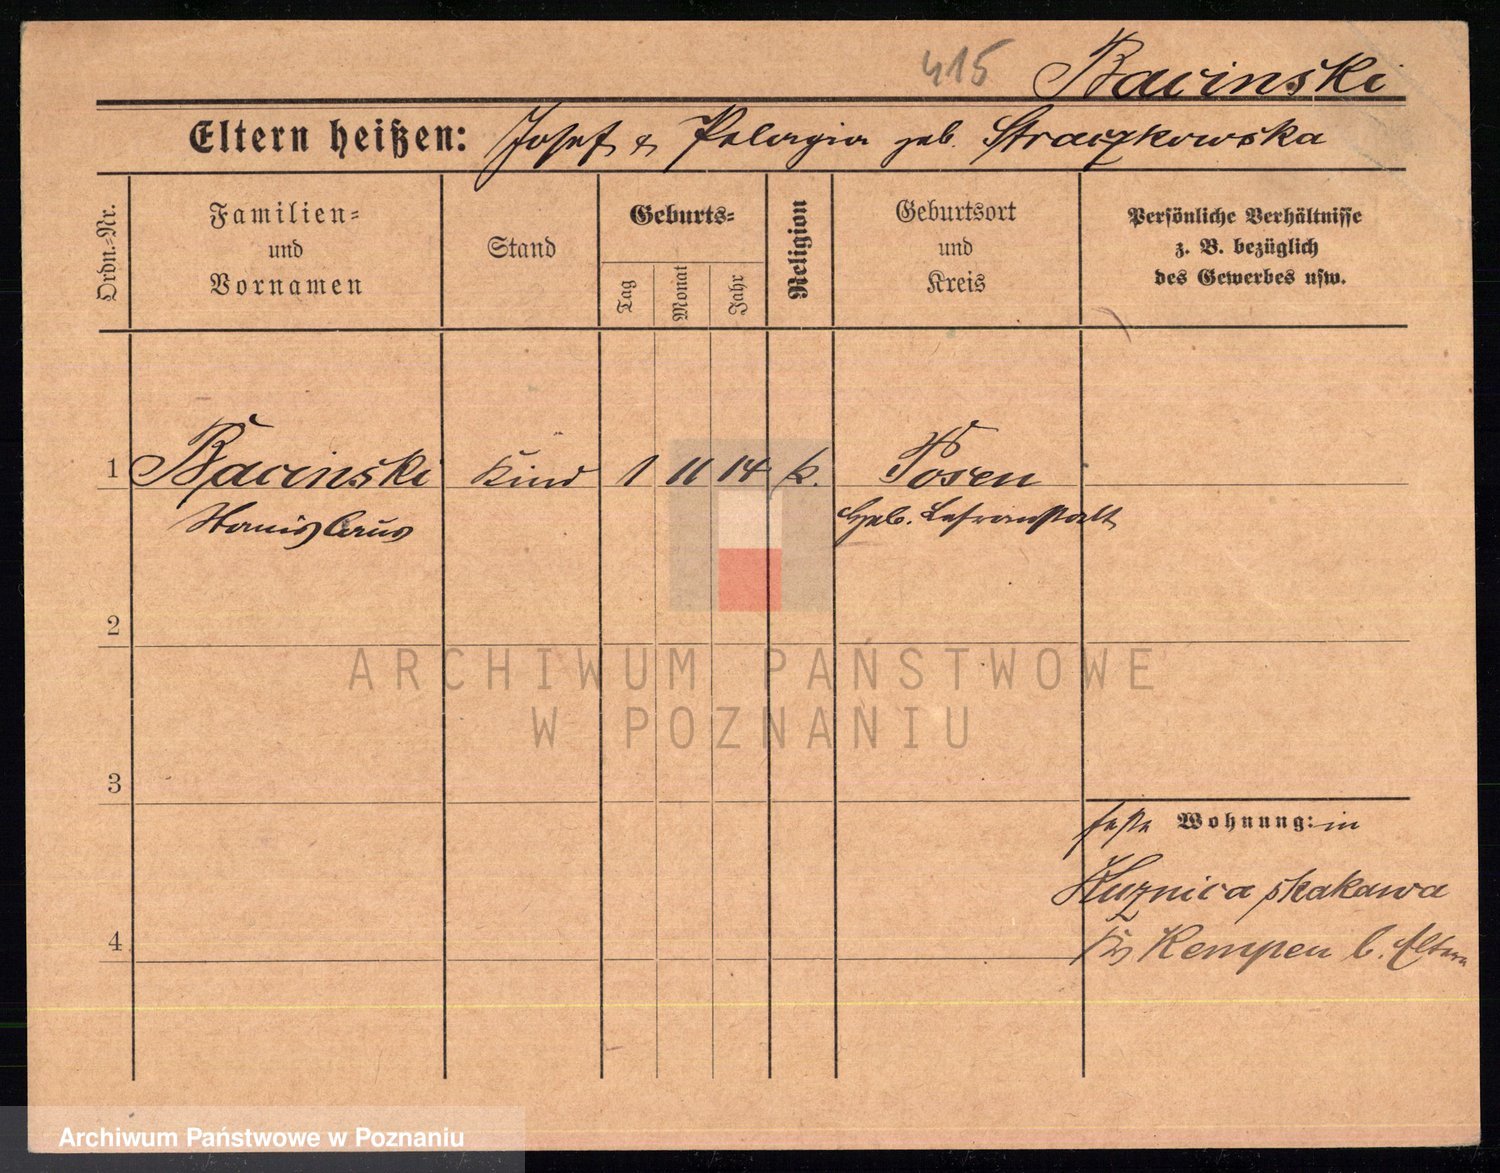 415 Bacinski
Eltern heißen: Josef & Pelagia geb. Straczkowska
Ordn.-Nr.
Familien-
und
Vornamen
Stand
Geburts-
Tag
Monat
Jahr
Religion
Geburtsort
und
Kreis
Persönliche Verhältnisse
z. B. bezüglich
des Gewerbes usw.
1 Bacinski Kind 1 11 14 k. Posen
Stanislaus Heb. Lehranstalt
2
ARCHIWUM PAŃSTWOWE
W POZNANIU
3
feste Wohnung: in
Kuznica skakawa
4 Krs Kempen b. Eltern
Archiwum Państwowe w Poznaniu